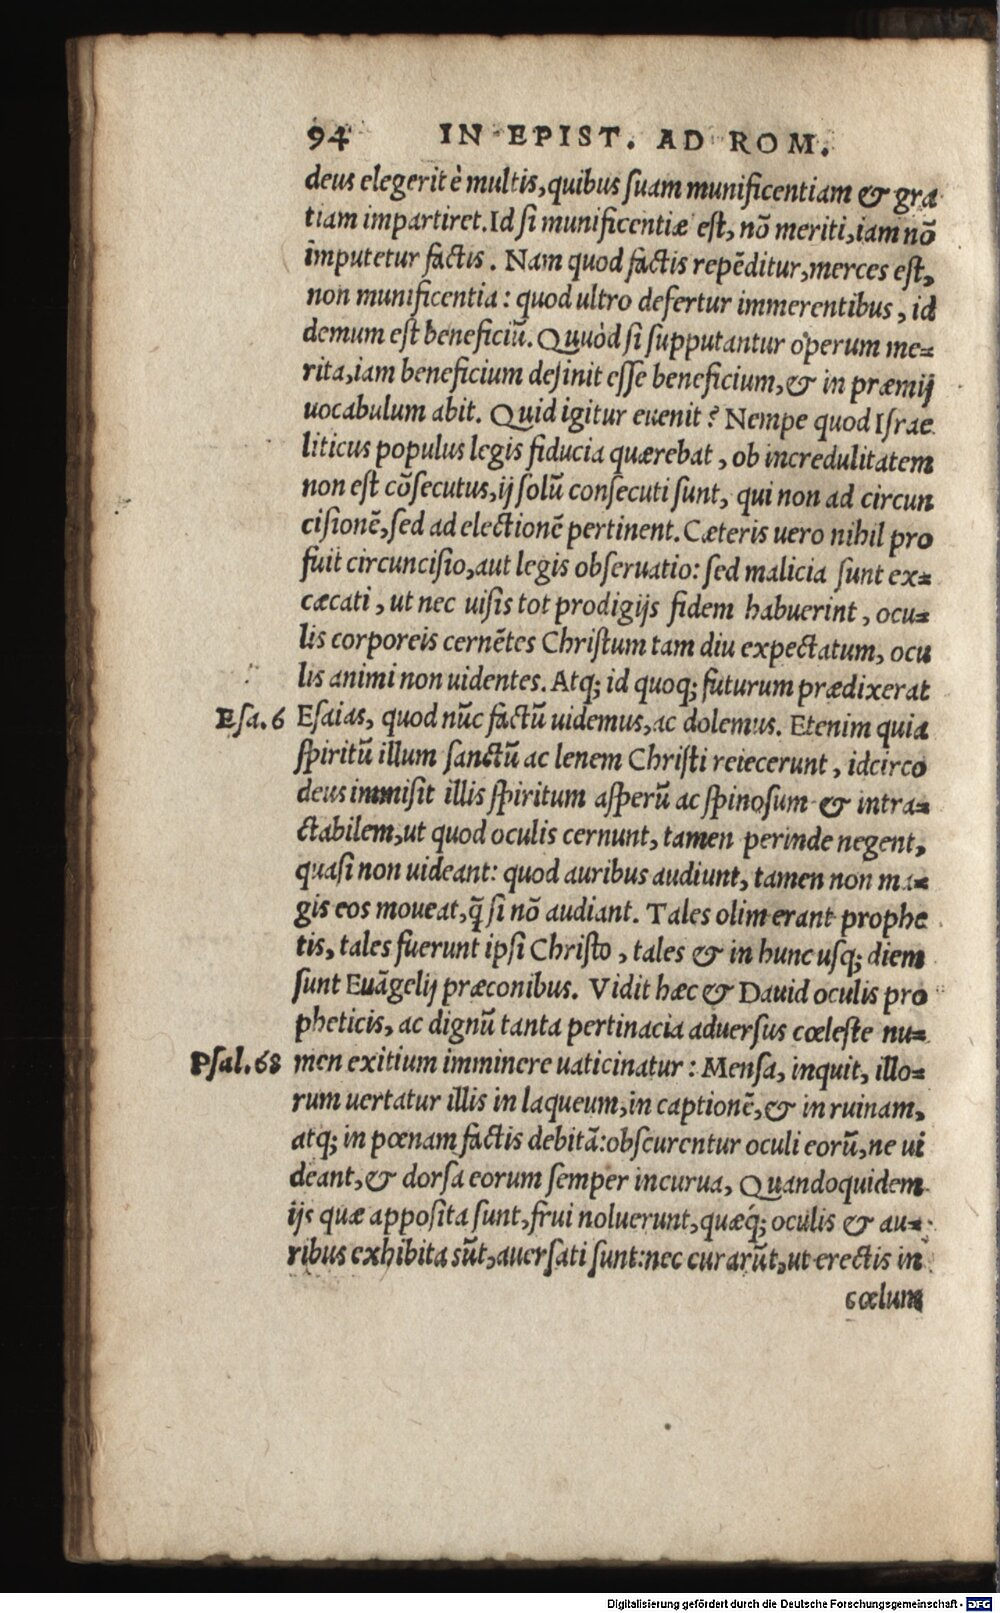 94 IN EPIST. AD ROM.
deus elegerit è multis, quibus suam munificentiam & gra
tiam impartiret. Id si munificentiæ est, nō meriti, iam nō
imputetur factis. Nam quod factis repēditur, merces est,
non munificentia: quod ultro defertur immerentibus, id
demum est beneficiū. Quòd si supputantur operum me=
rita, iam beneficium desinit esse beneficium, & in præmij
uocabulum abit. Quid igitur euenit? Nempe quod Israe
liticus populus legis fiducia quærebat, ob incredulitatem
non est cōsecutus, ij solū consecuti sunt, qui non ad circun
cisionē, sed ad electionē pertinent. Cæteris uero nihil pro
fuit circuncisio, aut legis obseruatio: sed malicia sunt ex=
cæcati, ut nec uisis tot prodigijs fidem habuerint, ocu=
lis corporeis cernētes Christum tam diu expectatum, ocu
lis animi non uidentes. Atq; id quoq; futurum prædixerat
Esa. 6 Esaias, quod nūc factū uidemus, ac dolemus. Etenim quia
spiritū illum sanctū ac lenem Christi reiecerunt, idcirco
deus immisit illis spiritum asperū ac spinosum & intra=
ctabilem, ut quod oculis cernunt, tamen perinde negent,
quasi non uideant: quod auribus audiunt, tamen non ma=
gis eos moueat, q̃ si nō audiant. Tales olim erant prophe
tis, tales fuerunt ipsi Christo, tales & in hunc usq; diem
sunt Euāgelij præconibus. Vidit hæc & Dauid oculis pro
pheticis, ac dignū tanta pertinacia aduersus cœleste nu=
Psal. 68 men exitium imminere uaticinatur: Mensa, inquit, illo=
rum uertatur illis in laqueum, in captionē, & in ruinam,
atq; in pœnam factis debitā: obscurentur oculi eorū, ne ui
deant, & dorsa eorum semper incurua, Quandoquidem
ijs quæ apposita sunt, frui noluerunt, quæq́; oculis & au=
ribus exhibita sūt, auersati sunt: nec curarūt, ut erectis in
cœlum
Digitalisierung gefördert durch die Deutsche Forschungsgemeinschaft - DFG